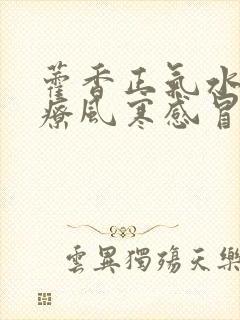 藿香正氣水
療風寒感冒
雲異獨殤天樂